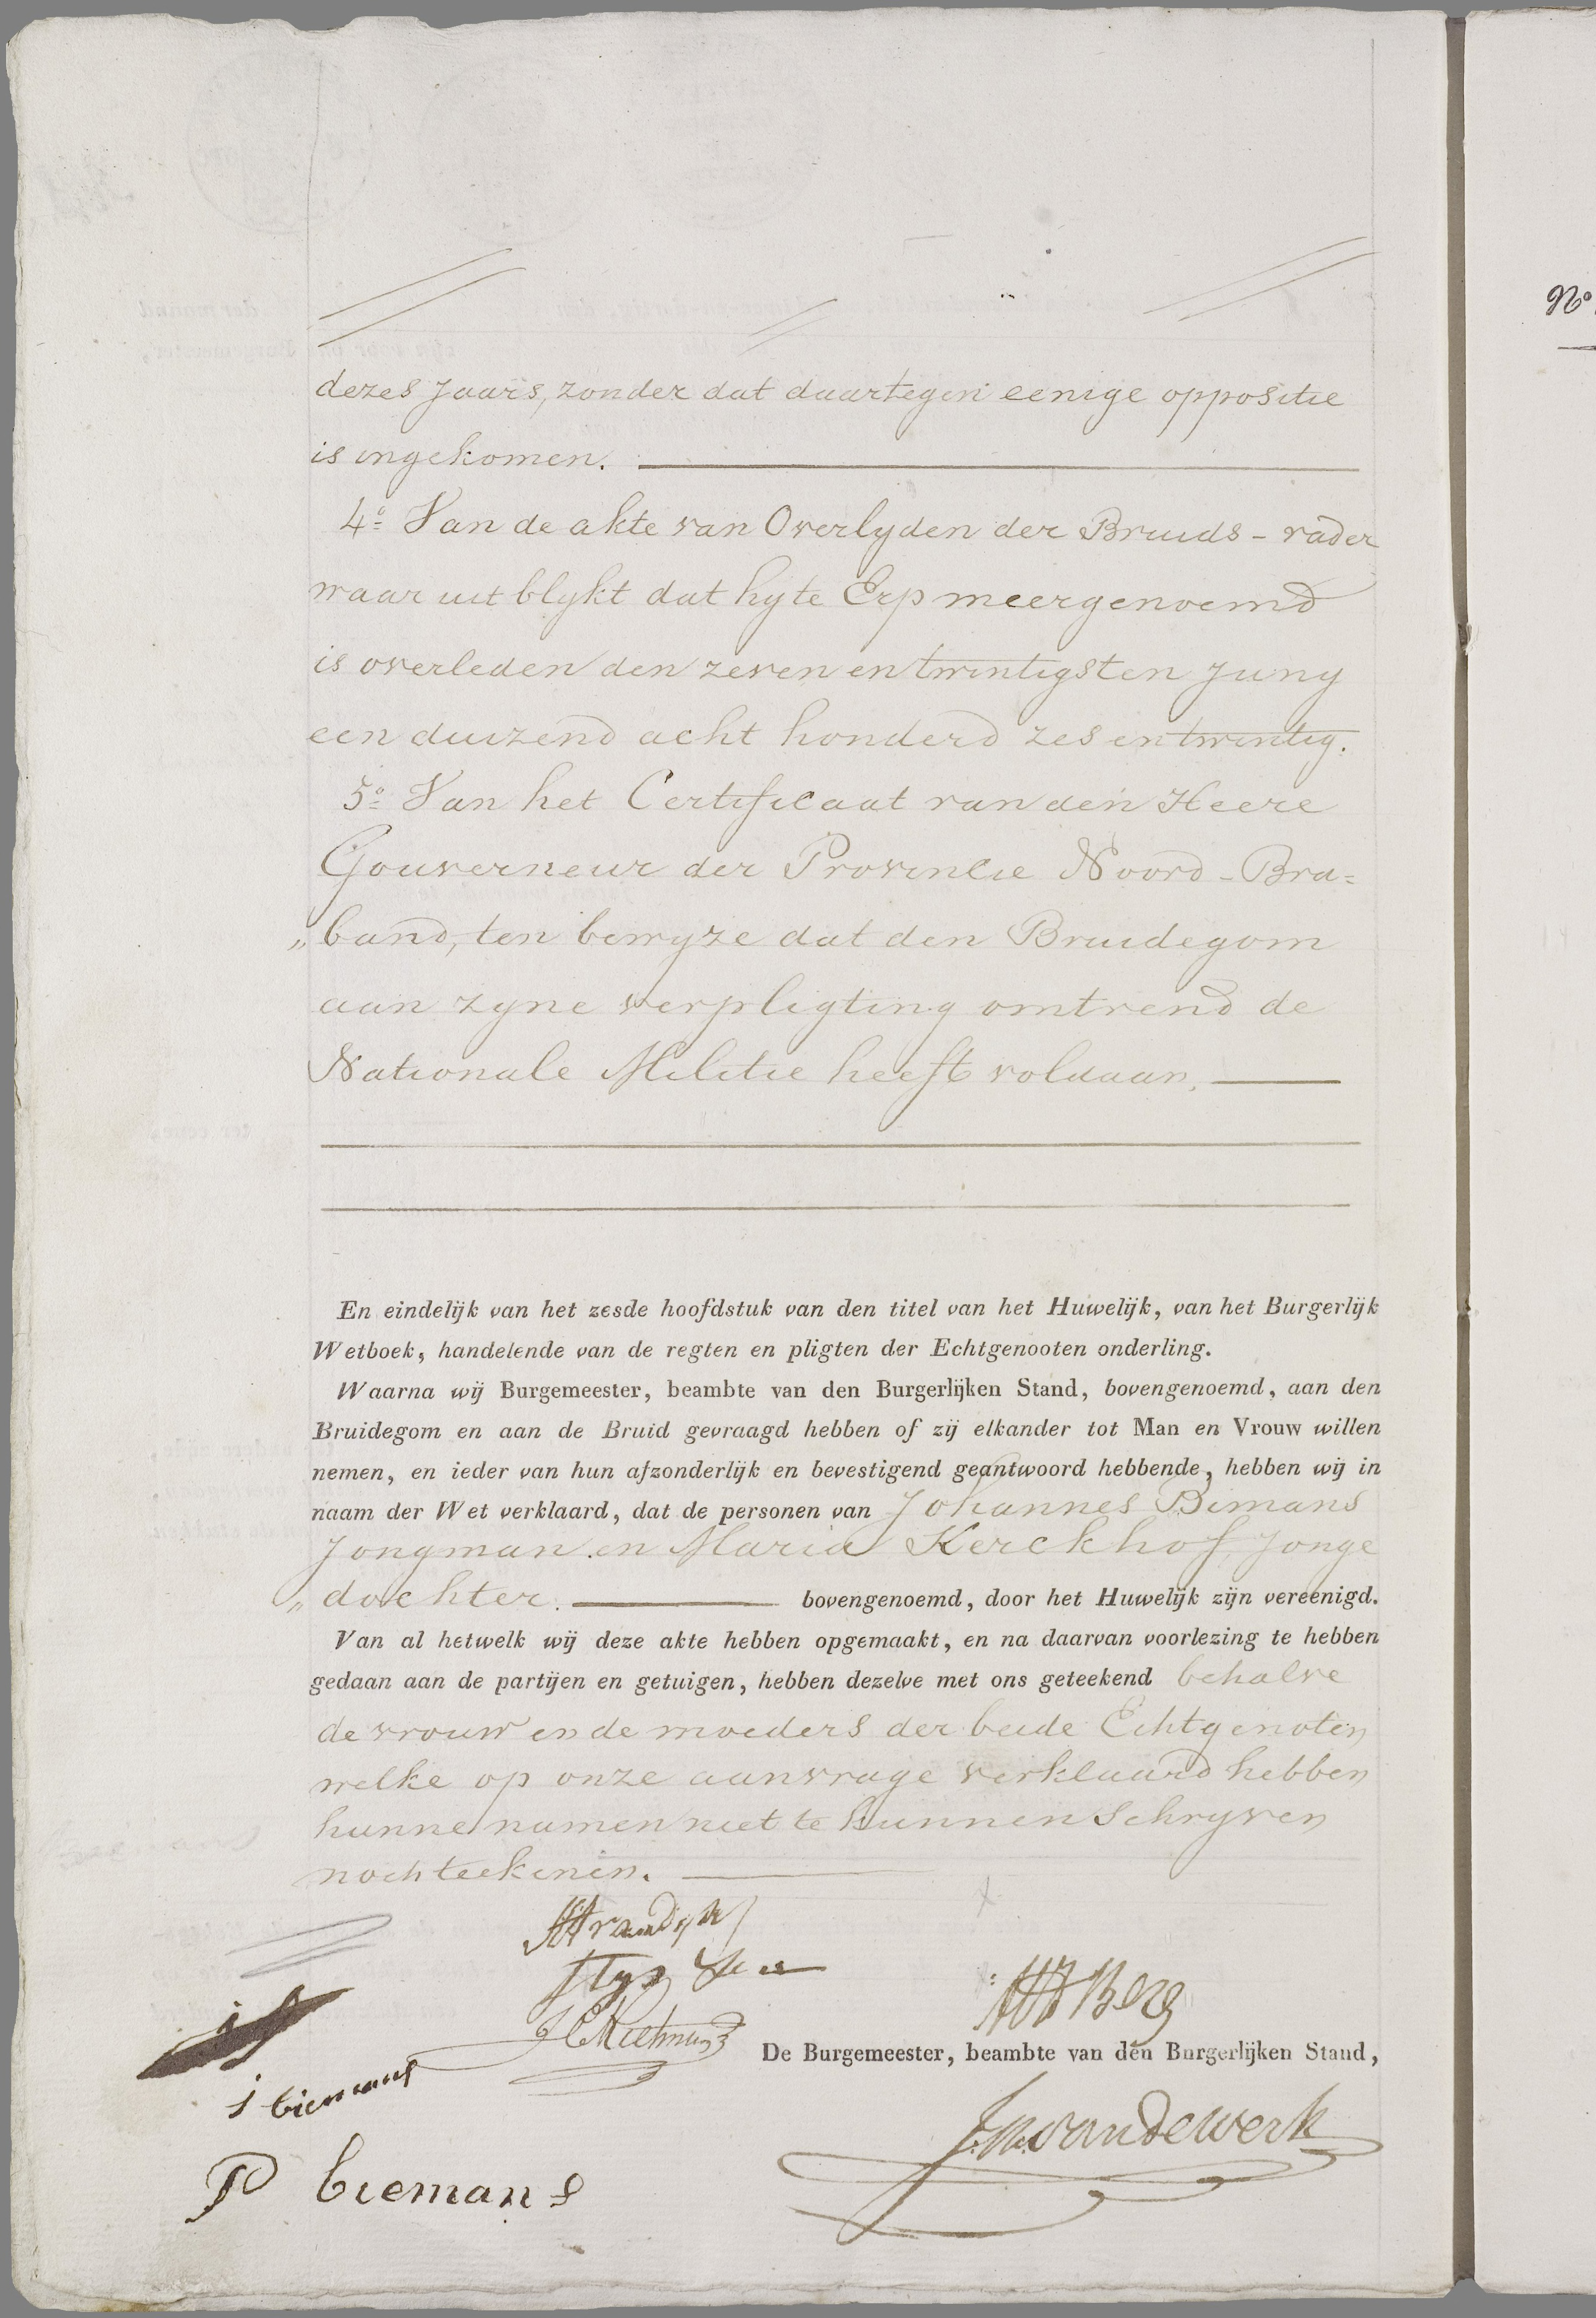 dezes jaars, zonder dat daartegen eenige oppositie
is ingekomen.
4º Van de akte van Overlyden der Bruids-vader
waar uit blykt dat hy te Erp meergenoemd
is overleden den zeven en twintigsten Juny
een duizend acht honderd zes en twintig.
5º Van het Certificaat van den Heere
Gouverneur der Provincie Noord-Bra=
„band, ten bewyze dat den Bruidegom
aan zyne verpligting omtrend de
Nationale Militie heeft voldaan.
En eindelijk van het zesde hoofdstuk van den titel van het Huwelijk, van het Burgerlijk
Wetboek, handelende van de regten en pligten der Echtgenooten onderling.
Waarna wij Burgemeester, beambte van den Burgerlijken Stand, bovengenoemd, aan den
Bruidegom en aan de Bruid gevraagd hebben of zij elkander tot Man en Vrouw willen
nemen, en ieder van hun afzonderlijk en bevestigend geantwoord hebbende, hebben wij in
naam der Wet verklaard, dat de personen van Johannes Bimans
Jongman en Maria Kerckhof, Jonge
„dochter. bovengenoemd, door het Huwelijk zijn vereenigd.
Van al hetwelk wij deze akte hebben opgemaakt, en na daarvan voorlezing te hebben
gedaan aan de partijen en getuigen, hebben dezelve met ons geteekend behalve
de vrouw en de moeders der beide Echtgenoten
welke op onze aanvrage verklaard hebben
hunne namen niet te kunnen Schryven
noch teekenen.
Berg
De Burgemeester, beambte van den Burgerlijken Stand,
j biemans
vandewerk
P biemans
Nº